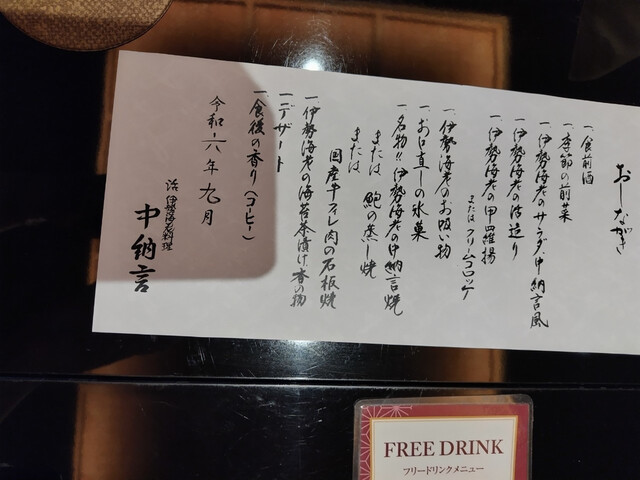 おしながき
一、食前酒
一、季節の前菜
一、伊勢海老のサラダ、中納言風
一、伊勢海老の活造り
一、伊勢海老の甲羅揚
または クリームコロッケ
一、伊勢海老のお吸い物
一、お口直しの氷菓
一、名物!! 伊勢海老の中納言焼
または 鮑の蒸し焼
または 国産牛フィレ肉の石板焼
一、伊勢海老の海苔茶漬け、香の物
一、デザート
一、食後の香り(コーヒー)
令和六年九月
活伊勢海老料理
中納言
FREE DRINK
フリードリンクメニュー